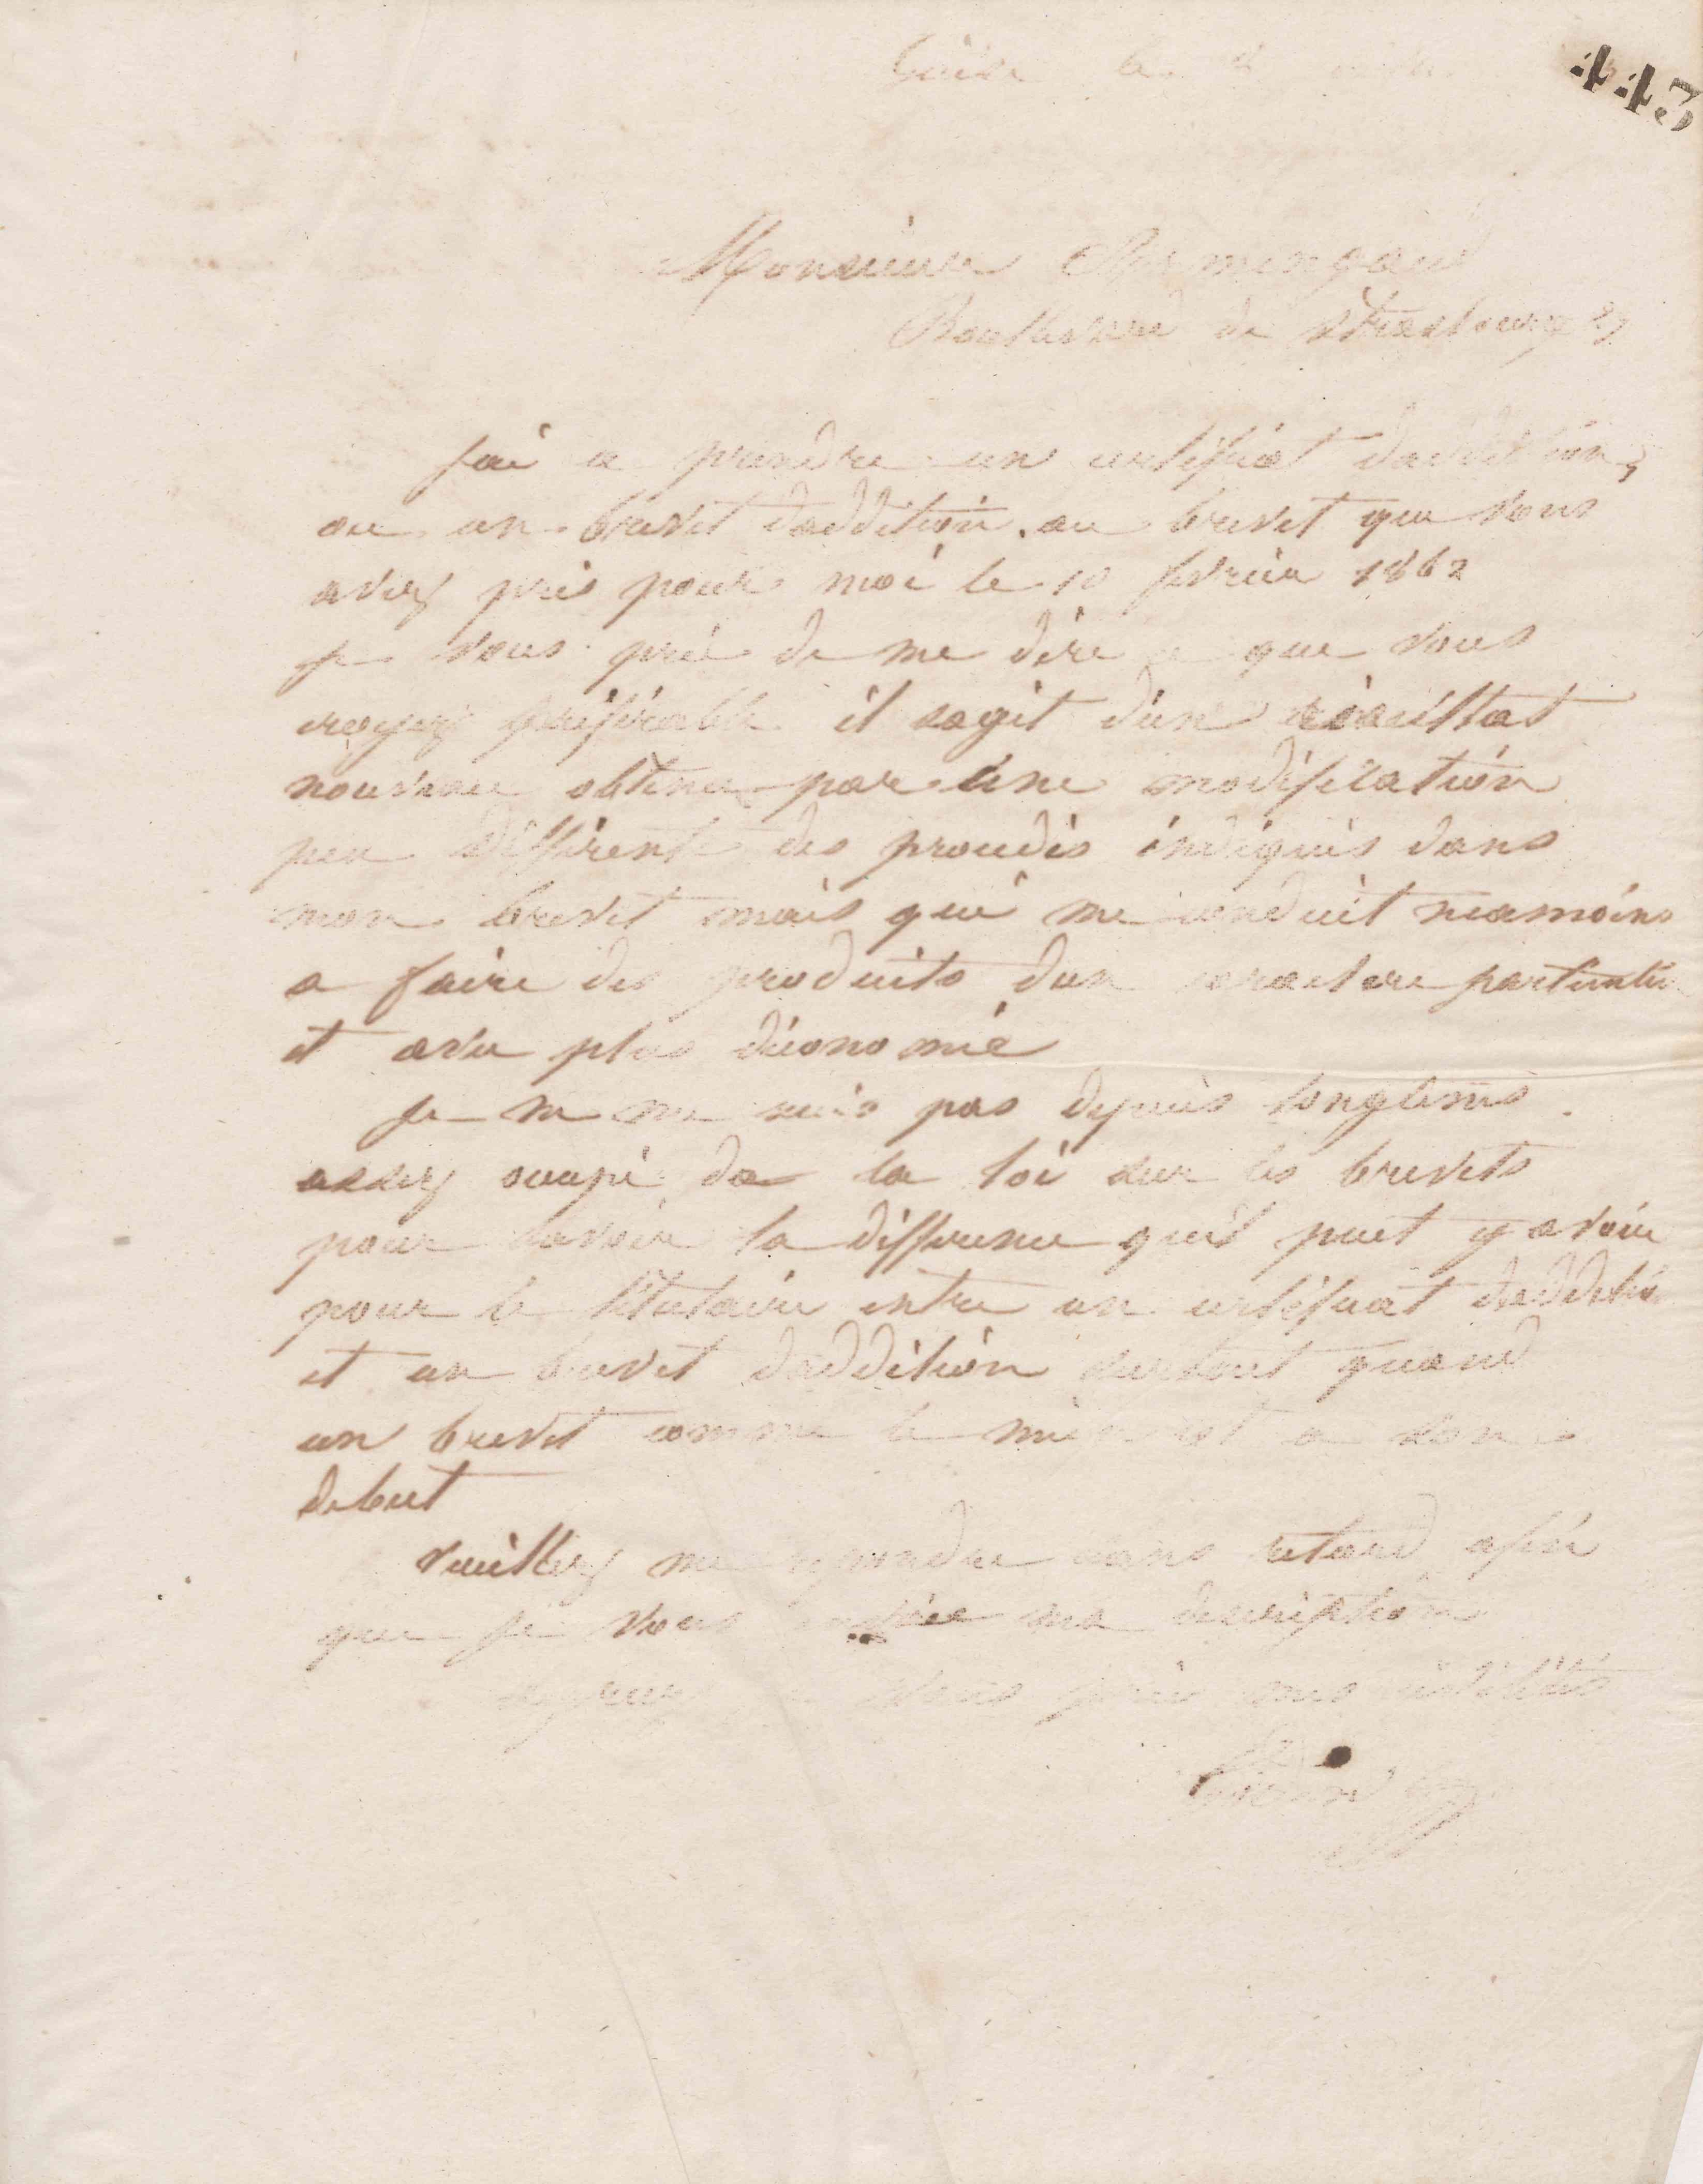 443
Guise le 2
Monsieur Armengaud
Boullevard de Strasbourg 23
jai a prendre un certificat daddition,
ou un brevet daddition. au brevet que vous
avez pris pour moi le 10 fevrier 1862
je vous prie de me dire ce que vous
croyez préférable il sagit d'un résultat
nouveau obtenu par une modification
peu différente des procédés indiqués dans
mon brevet mais qui me conduit néamoins
a faire des produits dun caractere particulier
et avec plus déconomie
je ne me suis pas depuis longtems
assez occupé de la loi sur les brevets
pour savoir la difference quil peut y avoir
pour le titulaire entre un certificat daddition
et un brevet daddition surtout quand
un brevet comme le mien est a son
debut
veuillez me repondre sans retard afin
que je vous envoie ma description
agreez je vous prie mes civilités
Godin